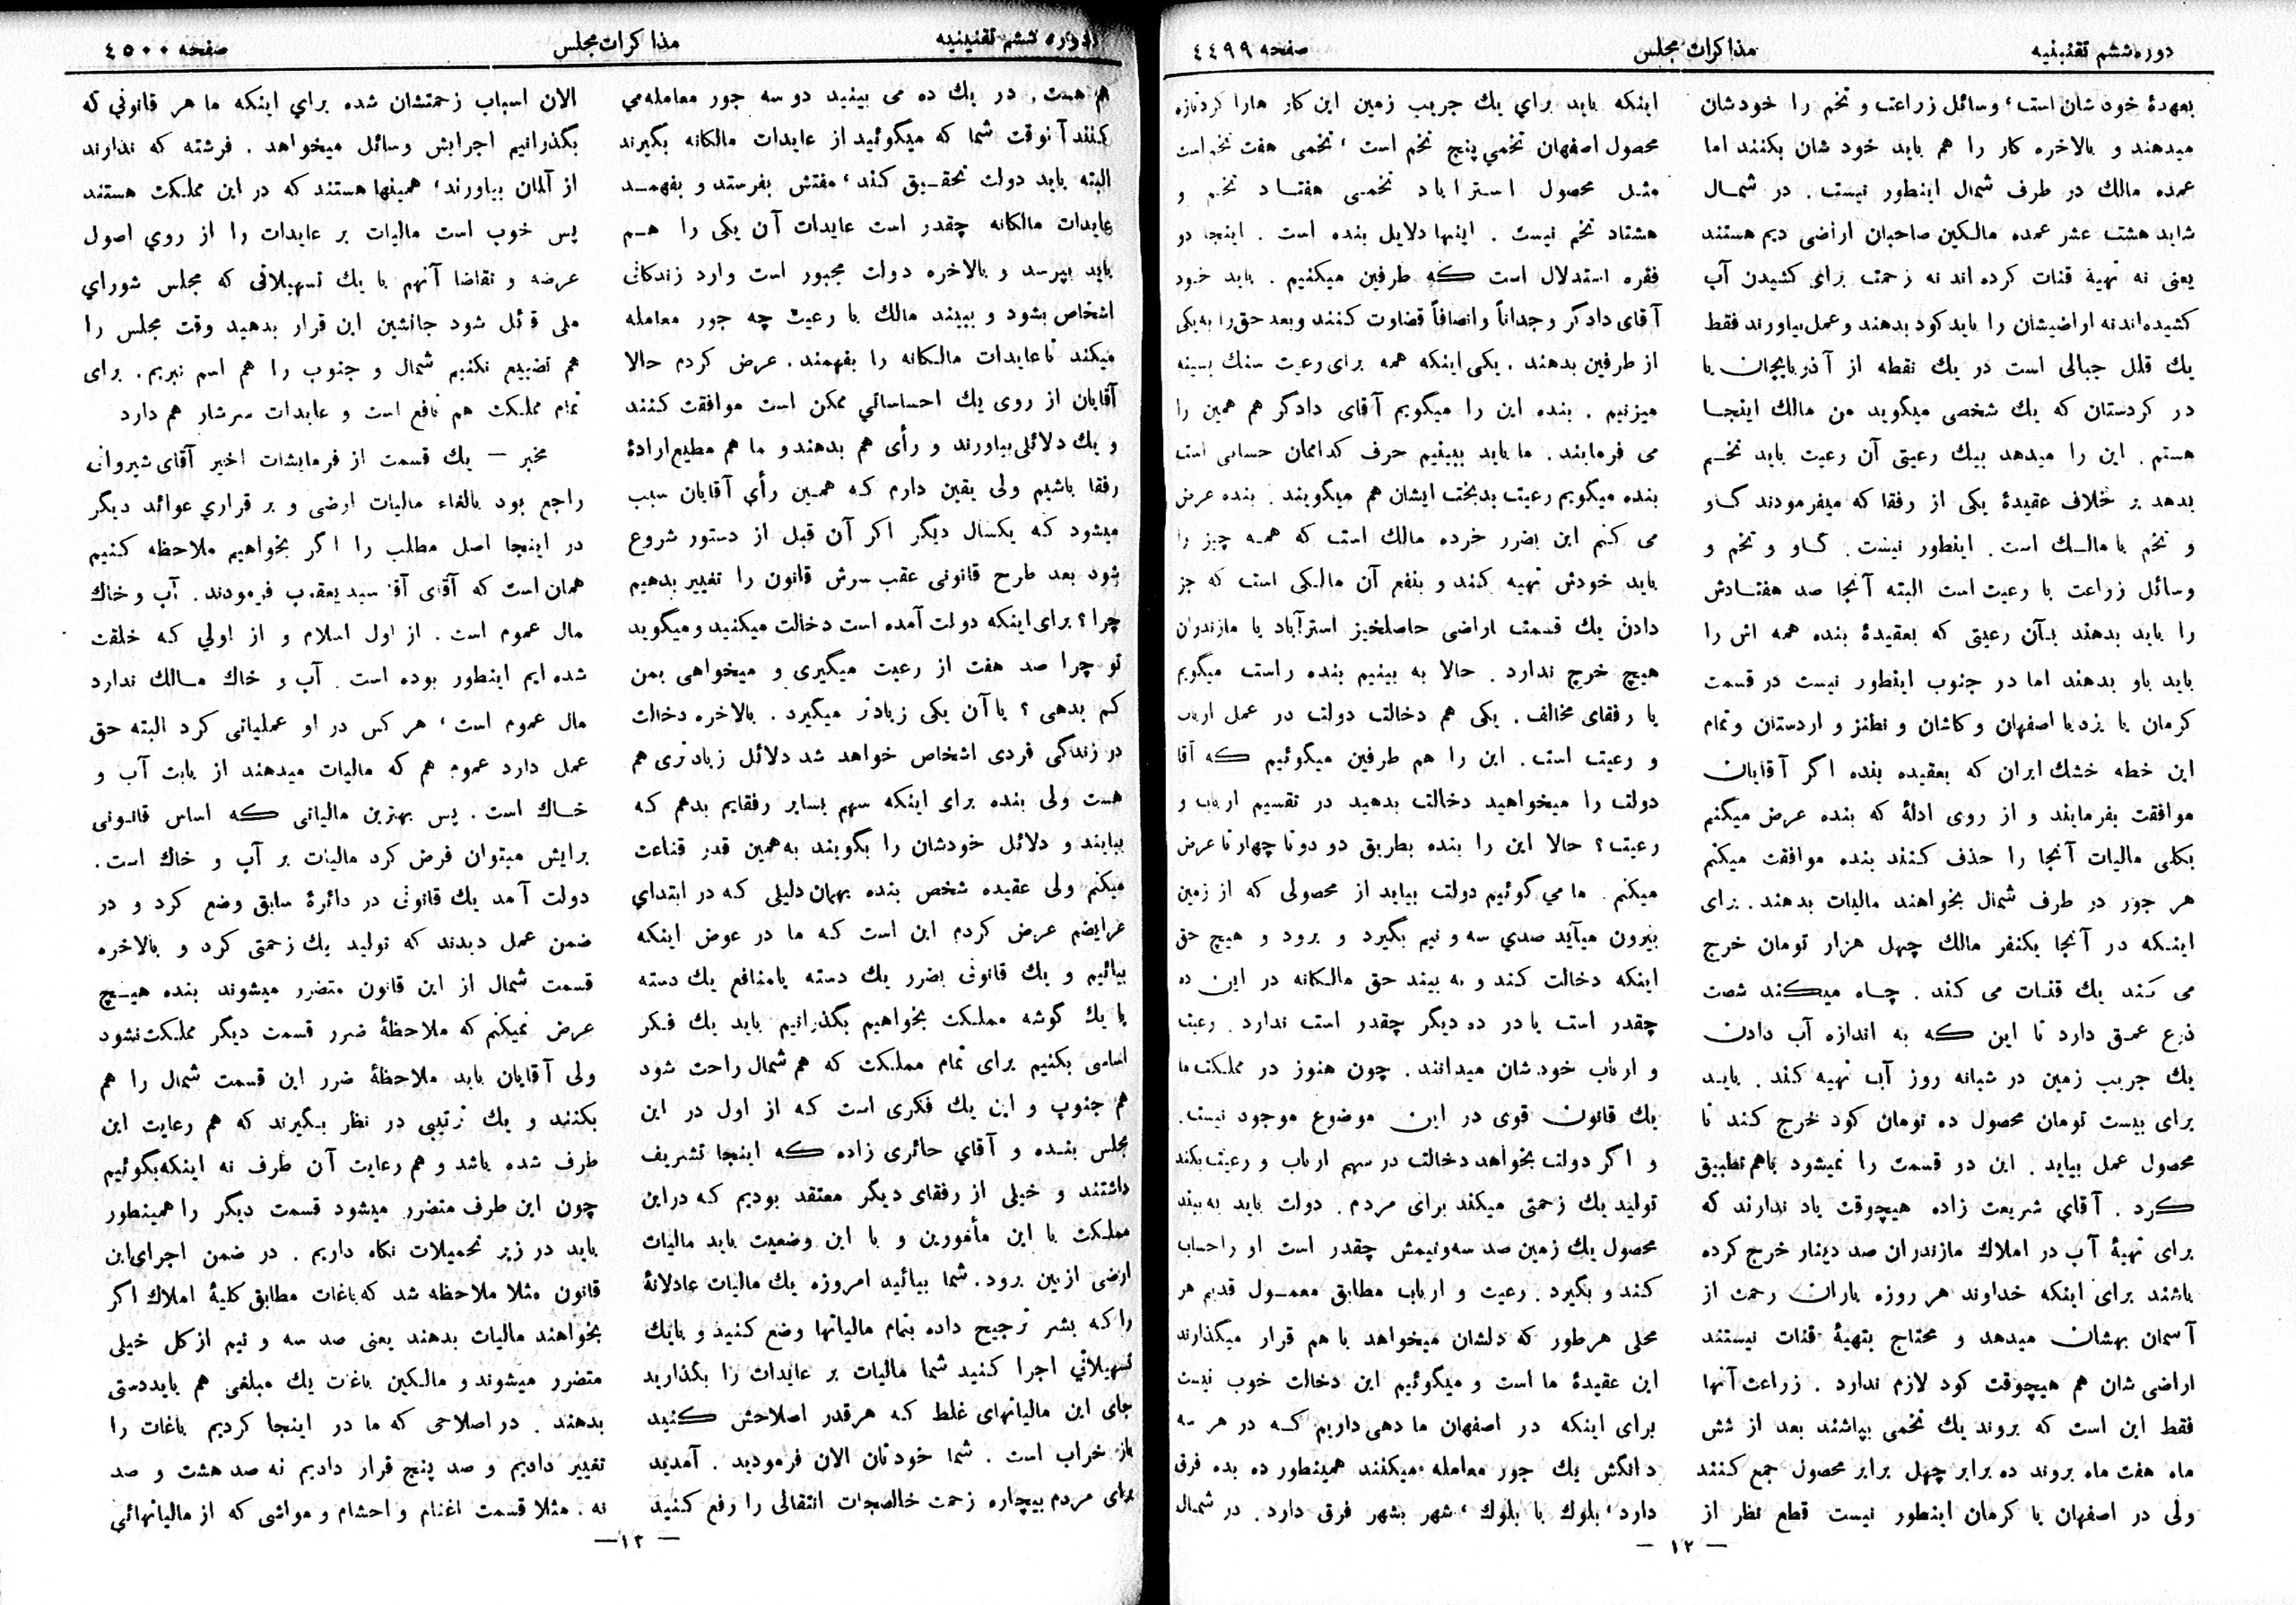 دوره ششم تقنینیه
مذاکرات مجلس
صفحه ٤٤٩٩
بعهدهٔ خودشان است، وسائل زراعت و تخم را خودشان
میدهند و بالاخره کار را هم باید خودشان بکنند اما
عمده مالک در طرف شمال اینطور نیست . در شمال
شاید هشت عشر عمده مالکین صاحبان اراضی دیم هستند
یعنی نه تهیهٔ قنات کرده اند نه زحمت برای کشیدن آب
کشیده‌اند نه اراضیشان را باید کود بدهند و عمل بیاورند فقط
یك قلل جبالی است در یك نقطه از آذربایجان یا
در کردستان که یك شخصی میگوید من مالك اینجا
هستم . این را میدهد بیك رعیتی آن رعیت باید تخم
بدهد بر خلاف عقیدهٔ یکی از رفقا که میفرمودند گاو
و تخم با مالك است . اینطور نیست . گاو و تخم و
وسائل زراعت با رعیت است البته آنجا صد هفتادش
را باید بدهند بآن رعیتی که بعقیدهٔ بنده همه اش را
باید باو بدهند اما در جنوب اینطور نیست در قسمت
کرمان یا یزد یا اصفهان و کاشان و نطنز و اردستان و تمام
این خطه خشك ایران که بعقیده بنده اگر آقایان
موافقت بفرمایند و از روی ادلهٔ که بنده عرض میکنم
بکلی مالیات آنجا را حذف کنند بنده موافقت میکنم
هر جور در طرف شمال بخواهند مالیات بدهند . برای
اینکه در آنجا یکنفر مالك چهل هزار تومان خرج
می کند یك قنات می کند . چاه میکند شصت
ذرع عمق دارد تا این که به اندازه آب دادن
یك جریب زمین در شبانه روز آب تهیه کند . باید
برای بیست تومان محصول ده تومان کود خرج کند تا
محصول عمل بیاید . این در قسمت را نمیشود باهم تطبیق
کرد . آقای شریعت زاده هیچوقت یاد ندارند که
برای تهیهٔ آب در املاك مازندران صد دینار خرج کرده
باشند برای اینکه خداوند هر روزه باران رحمت از
آسمان بهشان میدهد و محتاج بتهیهٔ قنات نیستند
اراضی شان هم هیچوقت کود لازم ندارد . زراعت آنها
فقط این است که بروند یك تخمی بپاشند بعد از شش
ماه هفت ماه بروند ده برابر چهل برابر محصول جمع کنند
ولی در اصفهان یا کرمان اینطور نیست قطع نظر از
اینکه باید برای یك جریب زمین این کار هارا کرد تازه
محصول اصفهان تخمی پنج تخم است ، تخمی هفت تخم است
مثل محصول استراباد تخمی هفتاد تخم و
هشتاد تخم نیست . اینها دلایل بنده است . اینجا دو
فقره استدلال است که طرفین میکنیم . باید خود
آقای دادگر وجداناً وانصافاً قضاوت کنند وبعد حق را به یکی
از طرفین بدهند . یکی اینکه همه برای رعیت سنك بسینه
میزنیم . بنده این را میگویم آقای دادگر هم همین را
می فرمایند . ما باید ببینیم حرف کداممان حسابی است
بنده میگویم رعیت بدبخت ایشان هم میگویند . بنده عرض
می کنم این بضرر خرده مالك است که همه چیز را
باید خودش تهیه کند و بنفع آن مالکی است که جز
دادن یك قسمت اراضی حاصلخیز استرآباد یا مازندران
هیچ خرج ندارد . حالا به بینیم بنده راست میگویم
یا رفقای مخالف . یکی هم دخالت دولت در عمل ارباب
و رعیت است . این را هم طرفین میگوئیم که آقا
دولت را میخواهید دخالت بدهید در تقسیم ارباب و
رعیت؟ حالا این را بنده بطریق دو دوتا چهارتا عرض
میکنم . ما می گوئیم دولت بیاید از محصولی که از زمین
بیرون میآید صدي سه و نیم بگیرد و برود و هیچ حق
اینکه دخالت کند و به بیند حق مالکانه در این ده
چقدر است یا در ده دیگر چقدر است ندارد . رعیت
و ارباب خودشان میدانند . چون هنوز در مملکت ما
یك قانون قوی در این موضوع موجود نیست .
و اگر دولت بخواهد دخالت در سهم ارباب و رعیت بکند
تولید یك زحمتی میکند برای مردم . دولت باید به بیند
محصول یك زمین صد سه ونیمش چقدر است او را حساب
کند و بگیرد . رعیت و ارباب مطابق معمول قدیم هر
محلی هرطور که دلشان میخواهد با هم قرار میگذارند
این عقیدهٔ ما است و میگوئیم این دخالت خوب نیست
برای اینکه در اصفهان ما دهی داریم که در هر سه
دانگش یك جور معامله میکنند همینطور ده بده فرق
دارد ، بلوك با بلوك ، شهر بشهر فرق دارد . در شمال
— ۱۲ —
دوره ششم تقنینیه
مذاکرات مجلس
صفحه ٤٥٠٠
هم هست . در یك ده می بینید دو سه جور معامله می
کنند آنوقت شما که میگوئید از عایدات مالکانه بگیرند
البته باید دولت تحقیق کند ، مفتش بفرستد و بفهمد
عایدات مالکانه چقدر است عایدات آن یکی را هم
باید بپرسد و بالاخره دولت مجبور است وارد زندگانی
اشخاص بشود و ببیند مالك با رعیت چه جور معامله
میکند تا عایدات مالکانه را بفهمند . عرض کردم حالا
آقایان از روی یك احساساتي ممکن است موافقت کنند
و یك دلائلی بیاورند و رأی هم بدهند و ما هم مطیع ارادهٔ
رفقا باشیم ولی یقین دارم که همین رأي آقایان سبب
میشود که یکسال دیگر اگر آن قبل از دستور شروع
شود بعد طرح قانونی عقب سرش قانون را تغییر بدهیم
چرا؟ برای اینکه دولت آمده است دخالت میکنید و میگوید
تو چرا صد هفت از رعیت میگیری و میخواهی بمن
کم بدهی ؟ با آن یکی زیادتر میگیرد . بالاخره دخالت
در زندگی فردی اشخاص خواهد شد دلائل زیادتری هم
هست ولی بنده برای اینکه سهم بسایر رفقایم بدهم که
بیایند و دلائل خودشان را بگویند به همین قدر قناعت
میکنم ولی عقیده شخص بنده بهمان دلیلی که در ابتدای
عرایضم عرض کردم این است که ما در عوض اینکه
بیائیم و یك قانونی بضرر یك دسته یا منافع یك دسته
یا یك گوشه مملکت بخواهیم بگذرانیم باید یك فکر
اساسی بکنیم برای تمام مملکت که هم شمال راحت شود
هم جنوب و این یك فکری است که از اول در این
مجلس بنده و آقاي حائری زاده که اینجا تشریف
داشتند و خیلی از رفقای دیگر معتقد بودیم که دراین
مملکت با این مأمورین و با این وضعیت باید مالیات
ارضی از بین برود . شما بیائید امروزه یك مالیات عادلانهٔ
را که بشر ترجیح داده بتمام مالیاتها وضع کنید و با یك
تسهیلاتی اجرا کنید شما مالیات بر عایدات را بگذارید
جای این مالیاتهای غلط که هرقدر اصلاحش کنید
باز خراب است . شما خودتان الان فرمودید . آمدید
برای مردم بیچاره زحمت خالصجات انتقالی را رفع کنید
الان اسباب زحمتشان شده براي اینکه ما هر قانونی که
بگذرانیم اجرایش وسائل میخواهد . فرشته که ندارند
از آلمان بیاورند ، همینها هستند که در این مملکت هستند
پس خوب است مالیات بر عایدات را از روي اصول
عرضه و تقاضا آنهم با یك تسهیلاتی که مجلس شوراي
ملی قائل شود جانشین این قرار بدهید وقت مجلس را
هم تضییع نکنیم شمال و جنوب را هم اسم نبریم . برای
تمام مملکت هم نافع است و عایدات سرشار هم دارد
مخبر — یك قسمت از فرمایشات اخیر آقای شیروانی
راجع بود بالغاء مالیات ارضی و برقراري عوائد دیگر
در اینجا اصل مطلب را اگر بخواهیم ملاحظه کنیم
همان است که آقای آقا سید یعقوب فرمودند . آب و خاك
مال عموم است . از اول اسلام و از اولي که خلقت
شده ایم اینطور بوده است . آب و خاك مالك ندارد
مال عموم است ، هر کس در او عملیاتی کرد البته حق
عمل دارد عموم هم که مالیات میدهند از بابت آب و
خاك است . پس بهترین مالیاتی که اساس قانونی
برایش میتوان فرض کرد مالیات بر آب و خاك است .
دولت آمد یك قانونی در دائرهٔ سابق وضع کرد و در
ضمن عمل دیدند که تولید یك زحمتی کرد و بالاخره
قسمت شمال از این قانون متضرر میشوند بنده هیچ
عرض نمیکنم که ملاحظهٔ ضرر قسمت دیگر مملکت نشود
ولی آقایان باید ملاحظهٔ ضرر این قسمت شمال را هم
بکنند و یك ترتیبی در نظر بگیرند که هم رعایت این
طرف شده باشد و هم رعایت آن طرف نه اینکه بگوئیم
چون این طرف متضرر میشود قسمت دیگر را همینطور
باید در زیر تحمیلات نگاه داریم . در ضمن اجرای این
قانون مثلا ملاحظه شد که باغات مطابق کلیهٔ املاك اگر
بخواهند مالیات بدهند یعنی صد سه و نیم از کل خیلی
متضرر میشوند و مالکین باغات یك مبلغی هم باید دستی
بدهند . در اصلاحی که ما در اینجا کردیم باغات را
تغییر دادیم و صد پنج قرار دادیم نه صد هشت و صد
نه . مثلا قسمت اغنام و احشام و مواشی که از مالیاتهائی
— ۱۳ —